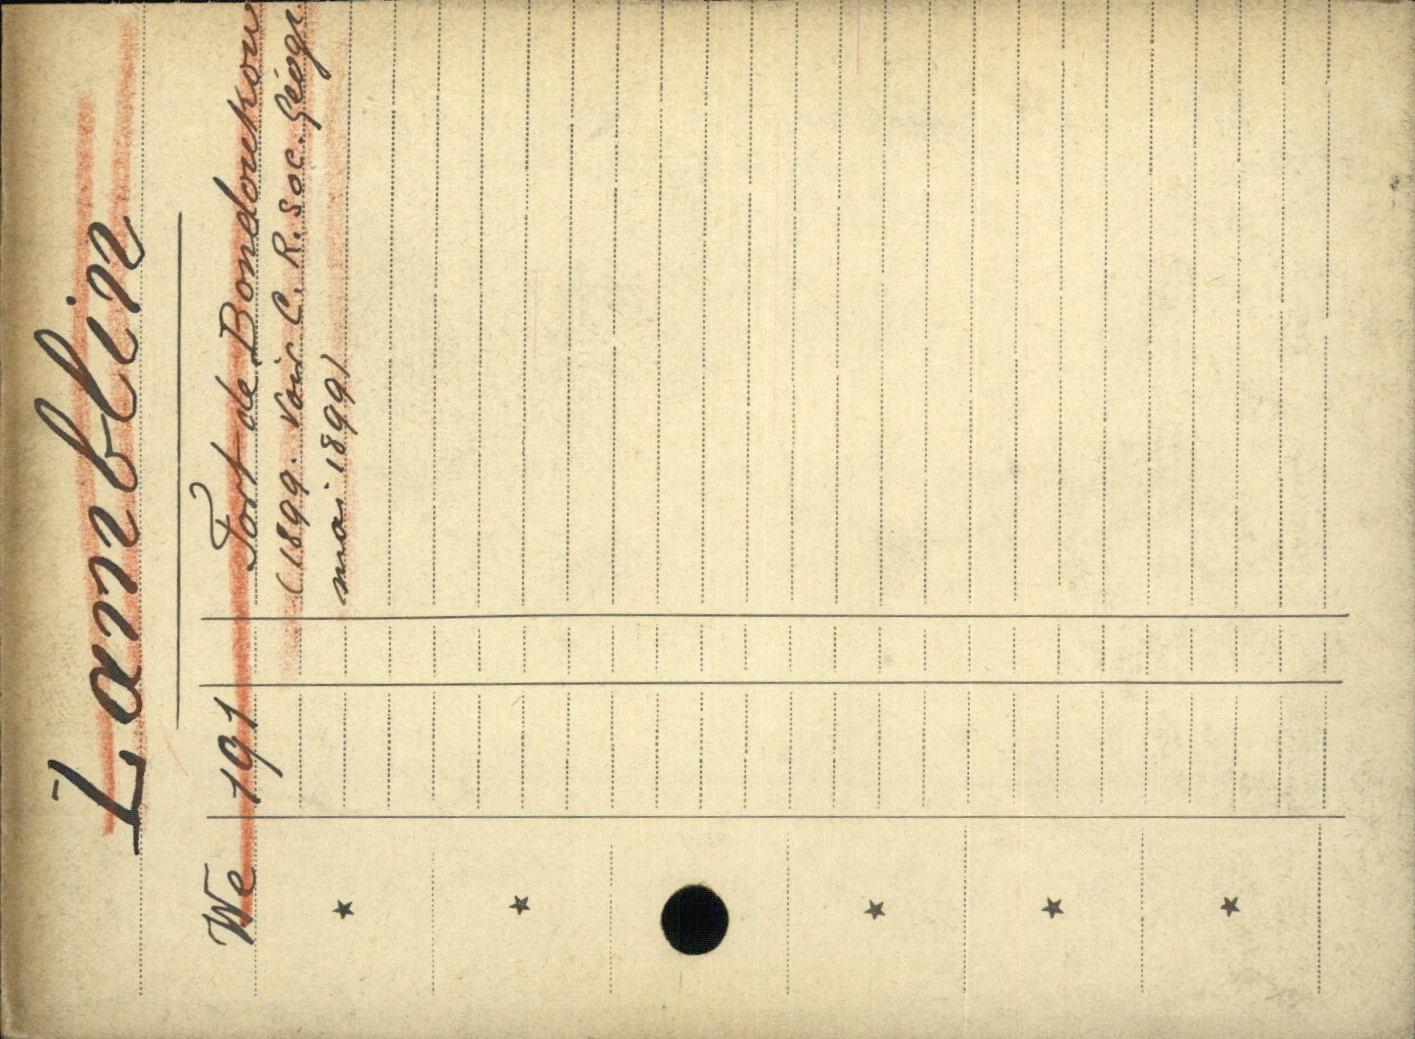 Lamblin
We 191 Fort de Bondoukou
(1899. Voir C. R. Soc. Géogr.
mai 1899)